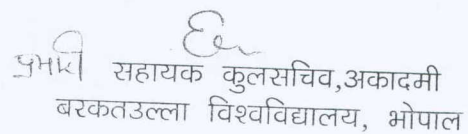 प्रभारी सहायक कुलसचिव,अकादमी
बरकतउल्ला विश्वविद्यालय, भोपाल